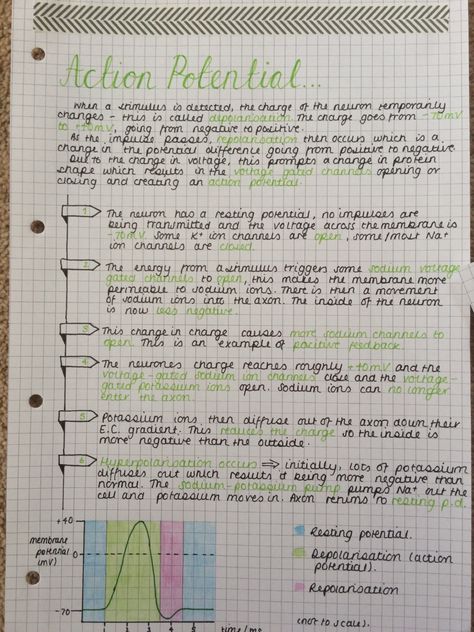 Action Potential...
When a stimulus is detected, the charge of the neuron temporarily
changes - this is called depolarisation. The charge goes from -70mV
to +40mV, going from negative to positive.
As the impulse passes, repolarisation then occurs which is a
change in the potential different going from positive to negative.
Due to the change in voltage, this prompts a change in protein
shape which results in the voltage gated channels opening or
closing and creating an action potential.
1. The neuron has a resting potential, no impulses are
being transmitted and the voltage across the membrane is
-70mV. Some K+ ion channels are open, some/most Na+
ion channels are closed.
2. The energy from a stimulus triggers some sodium voltage
gated channels to open, this makes the membrane more
permeable to sodium ions. There is then a movement
of sodium ions into the axon. The inside of the neuron
is now less negative.
3. This change in charge causes more sodium channels to
open. This is an example of positive feedback.
4. The neurones charge reaches roughly +40mV and the
voltage-gated sodium ion channels close and the voltage-
gated potassium ions open. Sodium ions can no longer
enter the axon.
5. Potassium ions then diffuse out of the axon down their
E.C. gradient. This reduces the charge so the inside is
more negative than the outside.
6. Hyperpolarisation occurs ⇒ initially, lots of potassium
diffuses out which results it being more negative than
normal. The sodium-potassium pump pumps Na+ out the
cell and potassium moves in. Axon returns to resting p.d.
+40
membrane
potential
(mV)
0
-70
1 2 3 4 5
time/ms
Resting potential.
Depolarisation (action
potential).
Repolarisation
(not to scale).